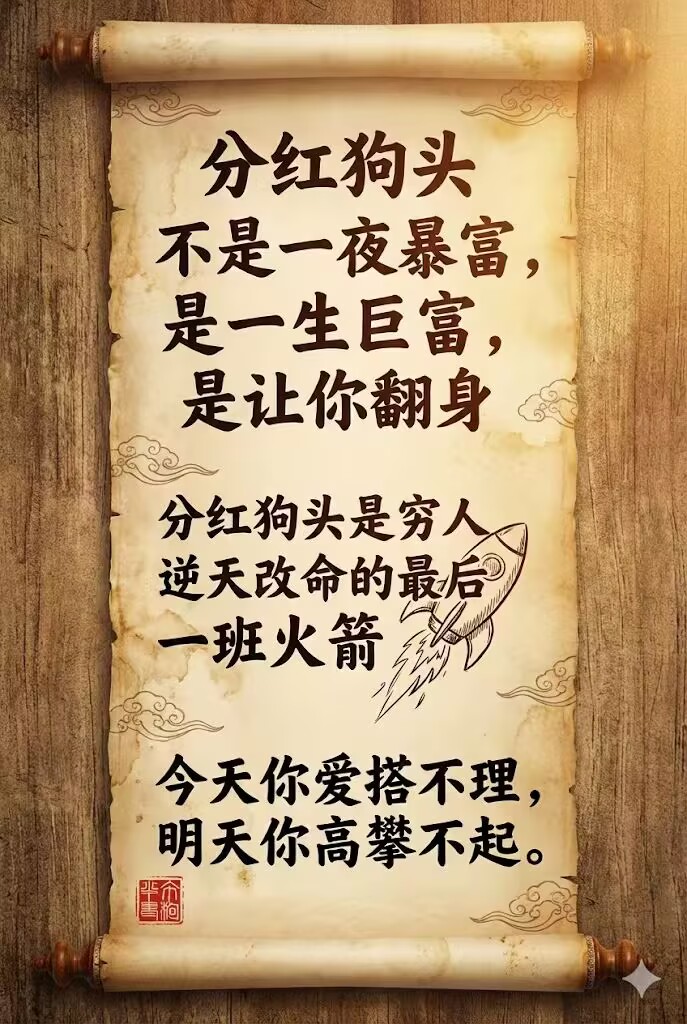 分红狗头
不是一夜暴富，
是一生巨富，
是让你翻身
分红狗头是穷人
逆天改命的最后
一班火箭
今天你爱搭不理，
明天你高攀不起。